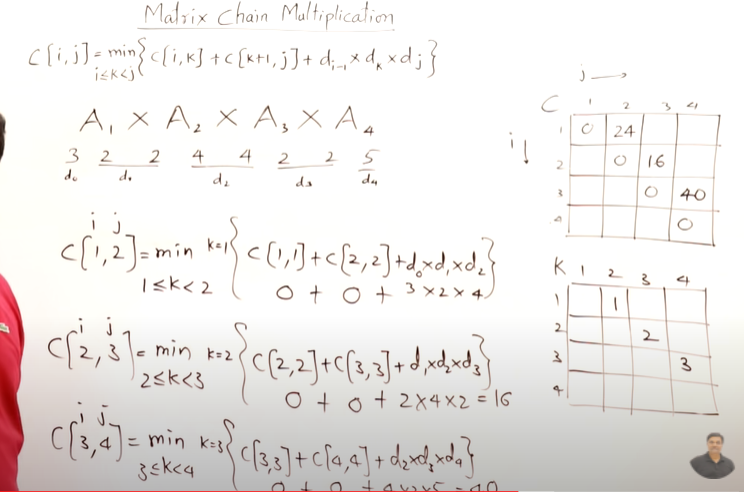 Matrix Chain Multiplication
C[i,j] = min { C[i,k] + C[k+1,j] + di-1 × dk × dj }
i≤k<j
A1 × A2 × A3 × A4
3 2 2 4 4 2 2 5
d0 d1 d2 d3 d4
i j
C[1,2] = min k=1 { C[1,1] + C[2,2] + d0×d1×d2 }
1≤k<2 0 + 0 + 3×2×4
i j
C[2,3] = min k=2 { C[2,2] + C[3,3] + d1×d2×d3 }
2≤k<3 0 + 0 + 2×4×2 = 16
i j
C[3,4] = min k=3 { C[3,3] + C[4,4] + d2×d3×d4 }
3≤k<4 0 + 0 + 4×2×5 = 40
j →
C 1 2 3 4
i↓
1 0 24
2 0 16
3 0 40
4 0
K 1 2 3 4
1 1
2 2
3 3
4